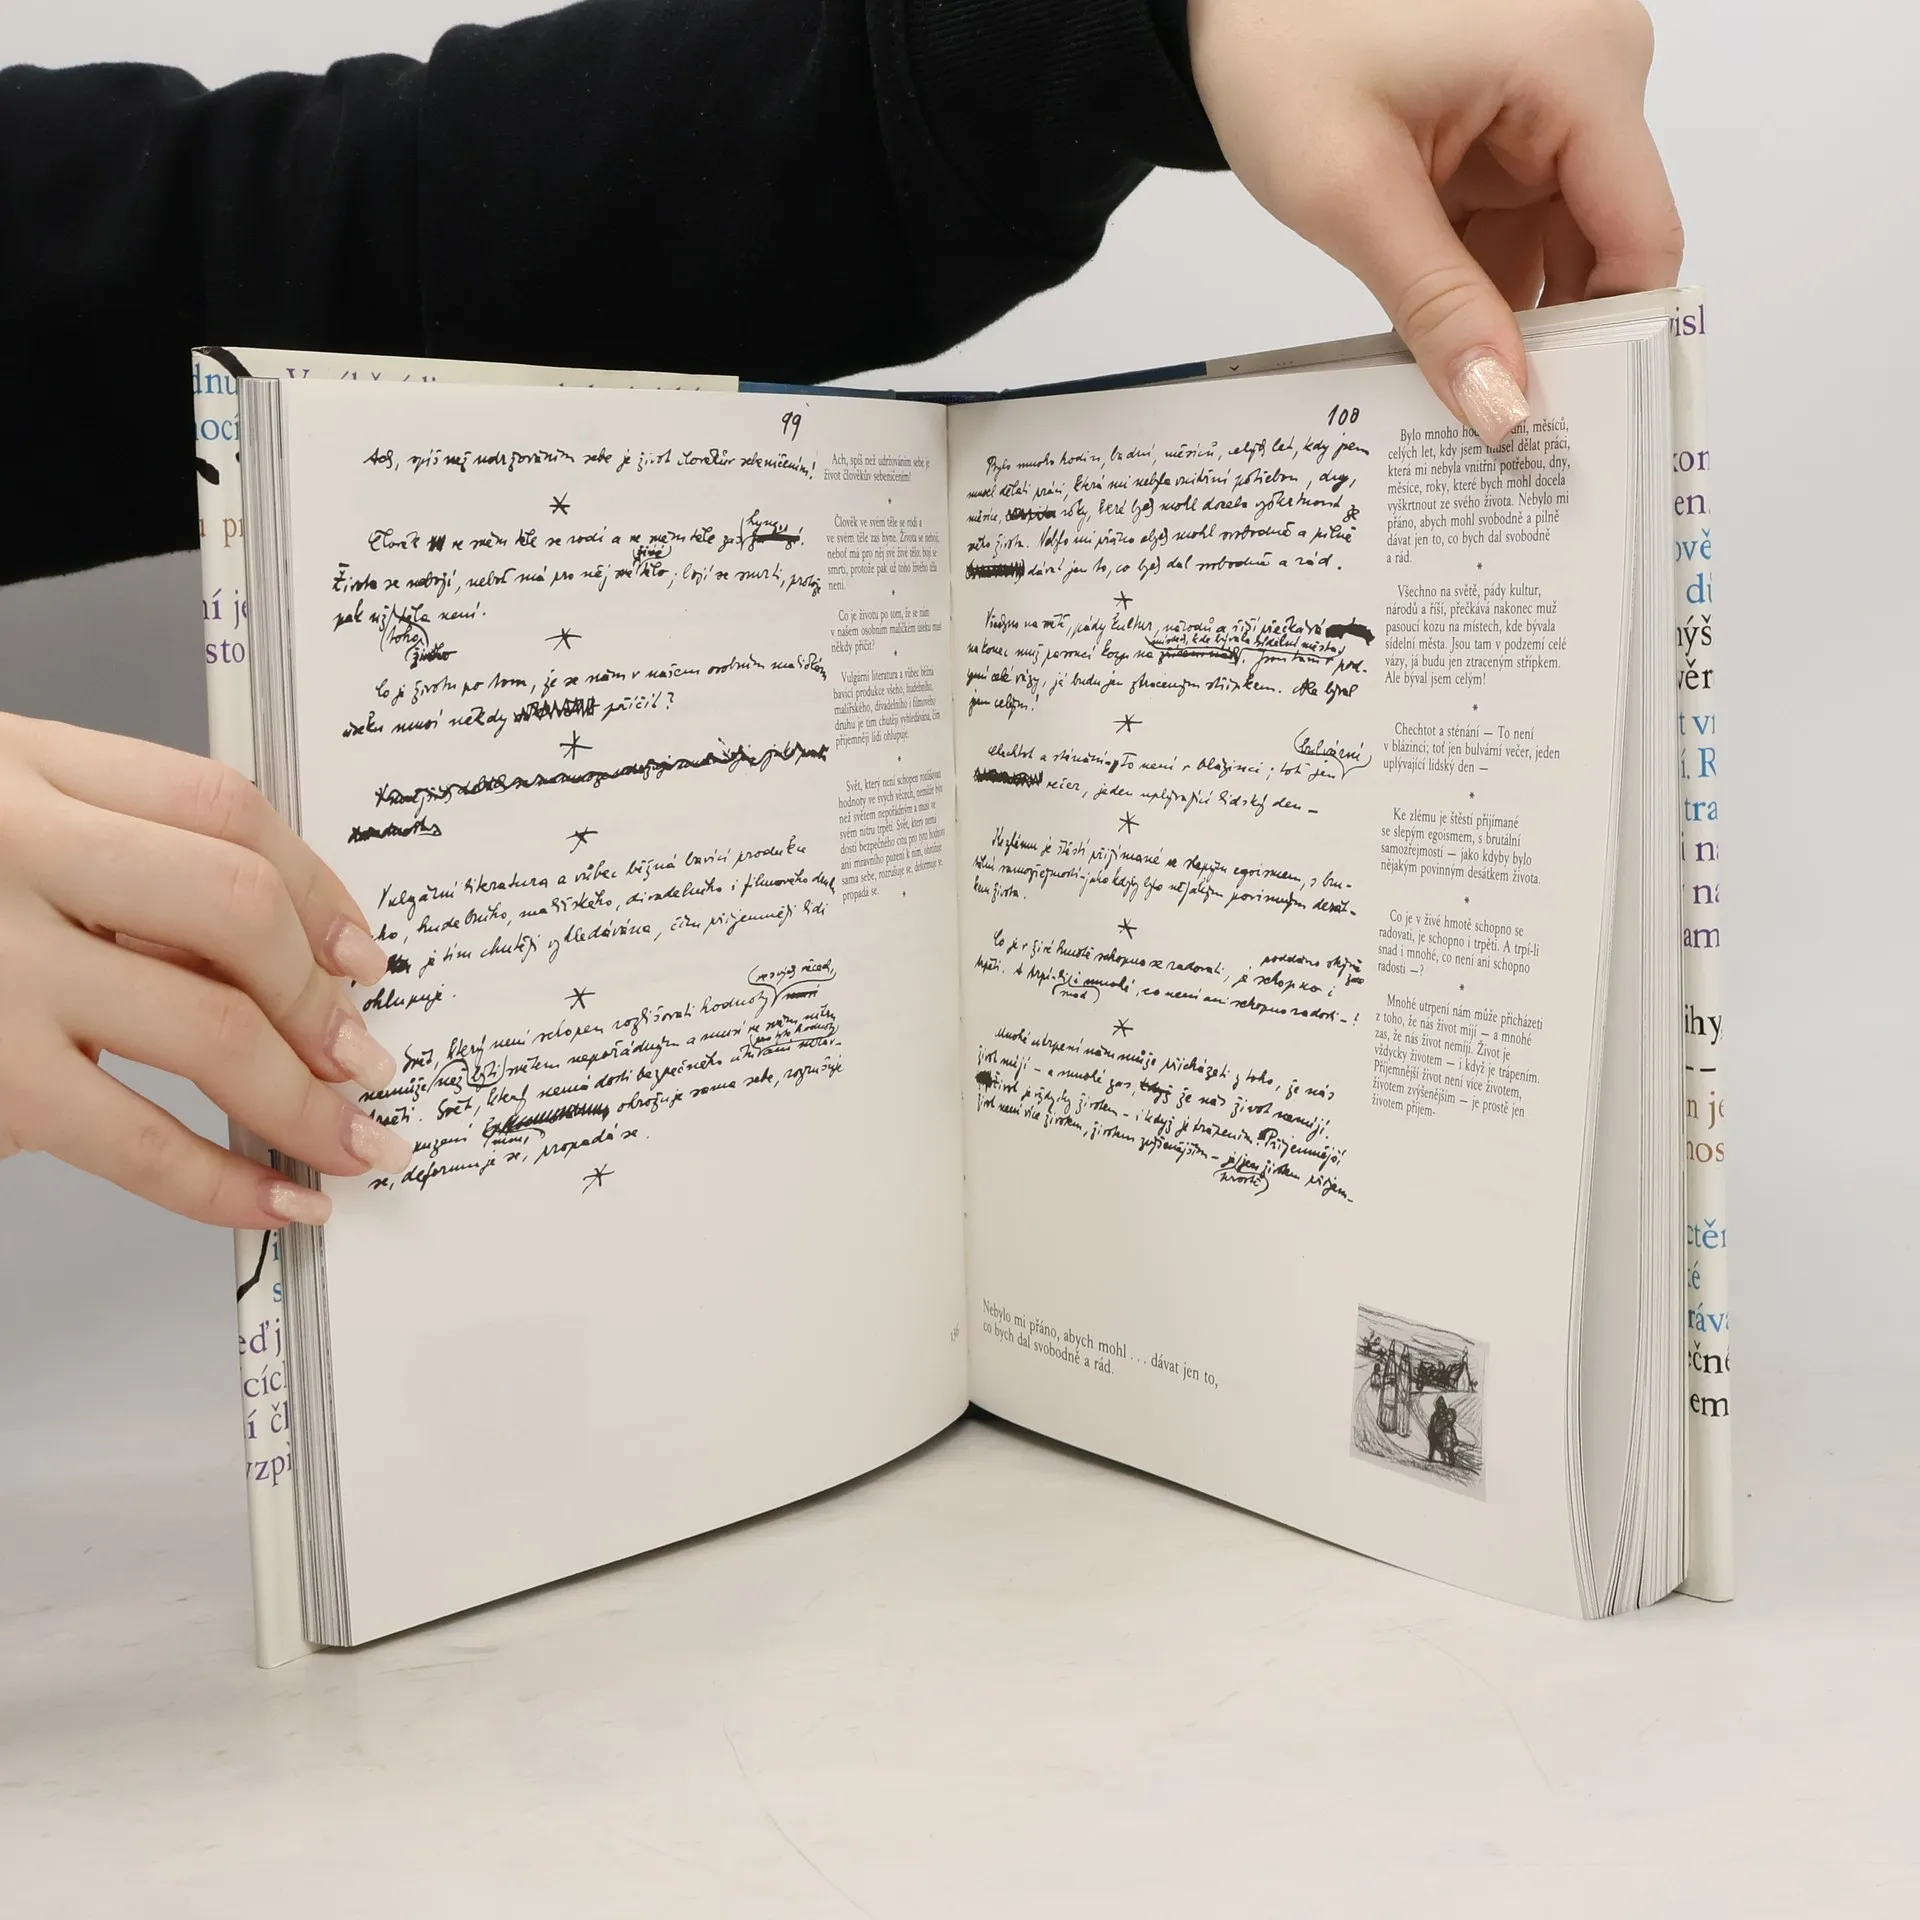 99
Ach, spíš než udržováním sebe je život člověkův sebeničením!
*
Člověk ve svém těle se rodí a ve svém těle zas hyne.
Života se nebojí, neboť má pro něj své živé tělo; bojí se smrti, protože
pak už toho těla není.
živého
*
Co je životu po tom, že se nám v našem osobním maličkém
úseku musí někdy příčit?
*
*
Vulgární literatura a vůbec běžná bavící produkce
ho, hudebního, malířského, divadelního i filmového druhu
je tím chutěji vyhledávána, čím příjemněji lidi
ohlupuje.
*
Svět, který není schopen rozlišovati hodnoty ve svých věcech,
nemůže než býti světem nepořádným a musí ve svém nitru
trpěti. Svět, který nemá dosti bezpečného pro tyto hodnoty
puzení k nim, ohrožuje sama sebe, rozrušuje
se, deformuje se, propadá se.
*
Ach, spíš než udržováním sebe je
život člověkův sebeničením!
*
Člověk ve svém těle se rodí a
ve svém těle zas hyne. Života se nebojí,
neboť má pro něj své živé tělo; bojí se
smrti, protože pak už toho živého těla
není.
*
Co je životu po tom, že se nám
v našem osobním maličkém úseku musí
někdy příčit?
*
Vulgární literatura a vůbec běžná
bavící produkce všeho, hudebního,
malířského, divadelního i filmového
druhu je tím chutěji vyhledávána, čím
příjemněji lidi ohlupuje.
*
Svět, který není schopen rozlišovat
hodnoty ve svých věcech, nemůže být
než světem nepořádným a musí ve
svém nitru trpěti. Svět, který nemá
dosti bezpečného citu pro tyto hodnoty
ani mravního puzení k nim, ohrožuje
sama sebe, rozrušuje se, deformuje se,
propadá se.
*
136
100
Bylo mnoho hodin, ba dní, měsíců, celých let, kdy jsem
musel dělati práci, která mi nebyla vnitřní potřebou, dny,
měsíce, roky, které bych mohl docela vyškrtnout ze
svého života. Nebylo mi přáno abych mohl svobodně a pilně
dávat jen to, co bych dal svobodně a rád.
*
Všechno na světě, pády kultur, národů a říší přečkává
nakonec muž pasoucí kozu na místech, kde bývala sídelní města. Jsou tam v pod-
zemí celé vázy, já budu jen ztraceným střípkem. Ale býval
jsem celým!
*
Chechtot a sténání – To není v blázinci; toť jen bulvární
večer, jeden uplývající lidský den –
*
Ke zlému je štěstí přijímané se slepým egoismem, s bru-
tální samozřejmostí – jako kdyby bylo nějakým povinným desát-
kem života.
*
Co je v živé hmotě schopno se radovati, je schopno i
trpěti. A trpí-li i snad mnohé, co není ani schopno radosti – ?
*
Mnohé utrpení nám může přicházeti z toho, že nás
život míjí – a mnohé zas, že nás život nemíjí.
Život je vždycky životem – i když je trápením. Příjemnější
život není více životem, životem zvýšenějším – je prostě jen životem příjem-
Bylo mnoho dní, měsíců,
celých let, kdy jsem musel dělat práci,
která mi nebyla vnitřní potřebou, dny,
měsíce, roky, které bych mohl docela
vyškrtnout ze svého života. Nebylo mi
přáno, abych mohl svobodně a pilně
dávat jen to, co bych dal svobodně
a rád.
*
Všechno na světě, pády kultur,
národů a říší, přečkává nakonec muž
pasoucí kozu na místech, kde bývala
sídelní města. Jsou tam v podzemí celé
vázy, já budu jen ztraceným střípkem.
Ale býval jsem celým!
*
Chechtot a sténání — To není
v blázinci; toť jen bulvární večer, jeden
uplývající lidský den —
*
Ke zlému je štěstí přijímané
se slepým egoismem, s brutální
samozřejmostí — jako kdyby bylo
nějakým povinným desátkem života.
*
Co je v živé hmotě schopno se
radovati, je schopno i trpěti. A trpí-li
snad i mnohé, co není ani schopno
radosti —?
*
Mnohé utrpení nám může přicházeti
z toho, že nás život míjí — a mnohé
zas, že nás život nemíjí. Život je
vždycky životem — i když je trápením.
Příjemnější život není více životem,
životem zvýšenějším — je prostě jen
životem příjem-
Nebylo mi přáno, abych mohl . . . dávat jen to,
co bych dal svobodně a rád.